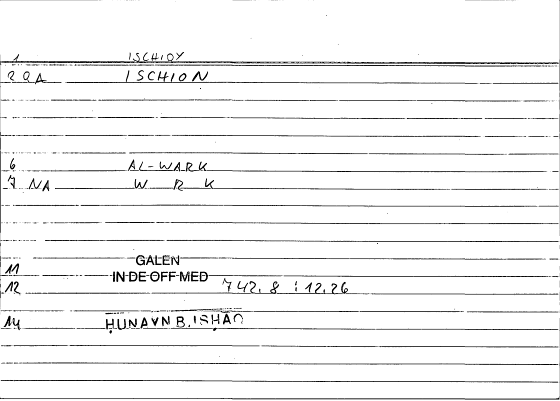 1 ISCHIOY
2 QA ISCHION
6 AL-WARK
7 NA W R K
11 GALEN
IN DE OFF MED
12 742.8 : 12.26
14 ḤUNAYN B. ISḤĀQ